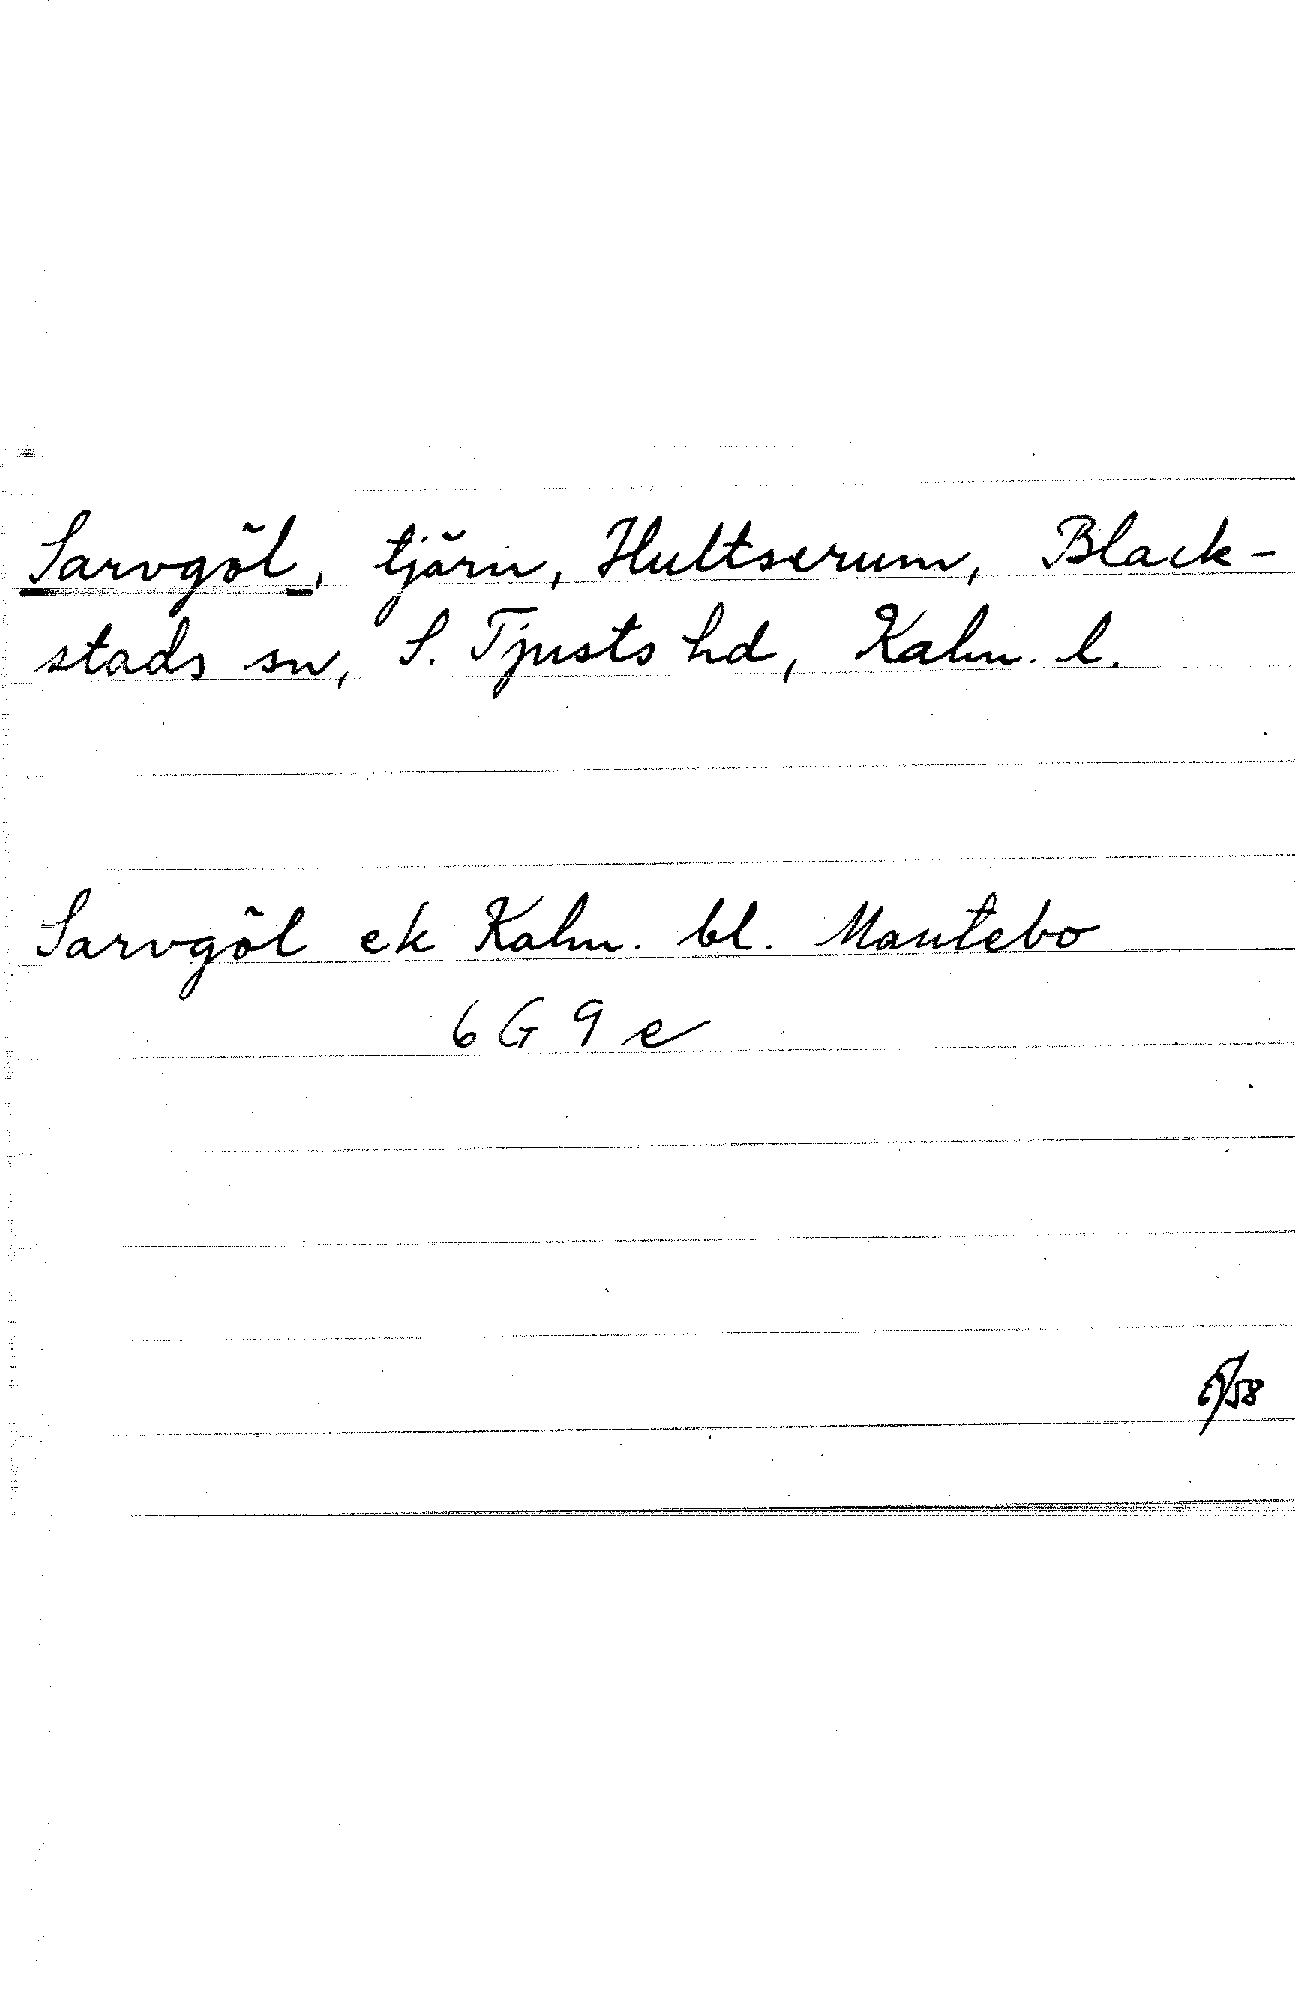 Sarvgöl, tjärn, Hultserum, Black-
stads sn, S. Tjusts hd, Kalm. l.
Sarvgöl ek Kalm. bl. Mantebo
6 G 9 e